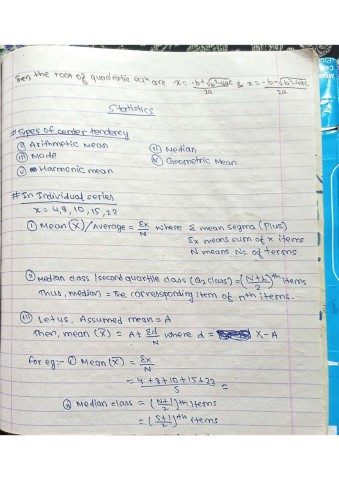 Then the root of quadratic eqn are x = -b+√b²-4ac/2a & x = -b-√b²-4ac/2a
Statistics
# Types of center tendency
i) Arithmetic mean
ii) Median
iii) Mode
iv) Geometric Mean
v) Harmonic mean
# In Individual series
x = 4,8,10,15,22
i) Mean (X̄)/Average = Σx/N where Σ mean segma (Plus)
Σx means sum of x items
N means No of terms
ii) Median class / second quartile class (Q₂ class) = (N+1/2)th items
Thus, median = The corresponding item of nth items.
iii) Let us, Assumed mean = A
Then, mean (X̄) = A + Σd/N where d = X - A
for eg:- i) Mean (X̄) = Σx/N
= 4+8+10+15+22/5 =
ii) Median class = (N+1/2)th items
= (5+1/2)th items